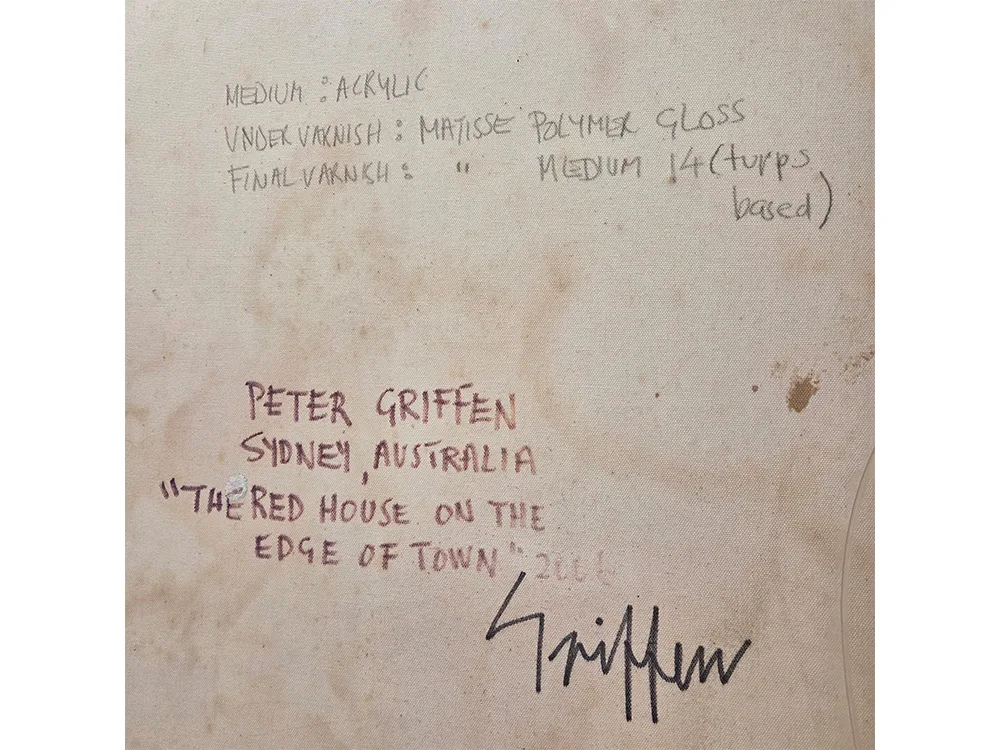 MEDIUM : ACRYLIC
UNDER VARNISH : MATISSE POLYMER GLOSS
FINAL VARNISH : " MEDIUM 14 (turps
based)
PETER GRIFFEN
SYDNEY, AUSTRALIA
"THE RED HOUSE ON THE
EDGE OF TOWN" 2006
Griffen